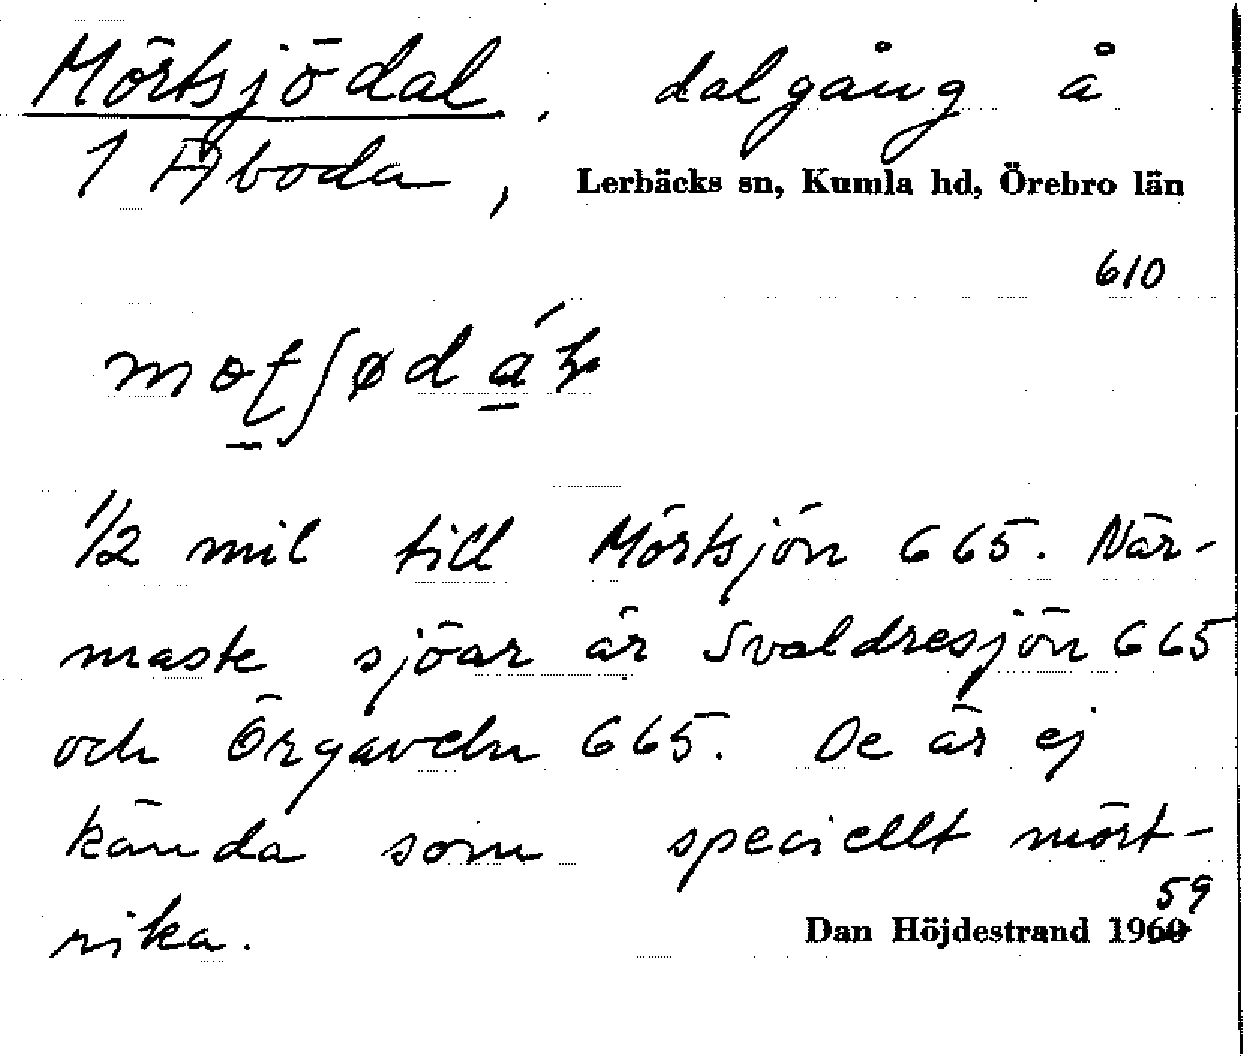 Mörtsjödal, dalgång å
1 Åboda,
Lerbäcks sn, Kumla hd, Örebro län
610
½ mil till Mörtsjön 665. När-
maste sjöar är Svaldresjön 665
och Örgaveln 665. De är ej
kända som speciellt mört-
rika.
59
Dan Höjdestrand 1960